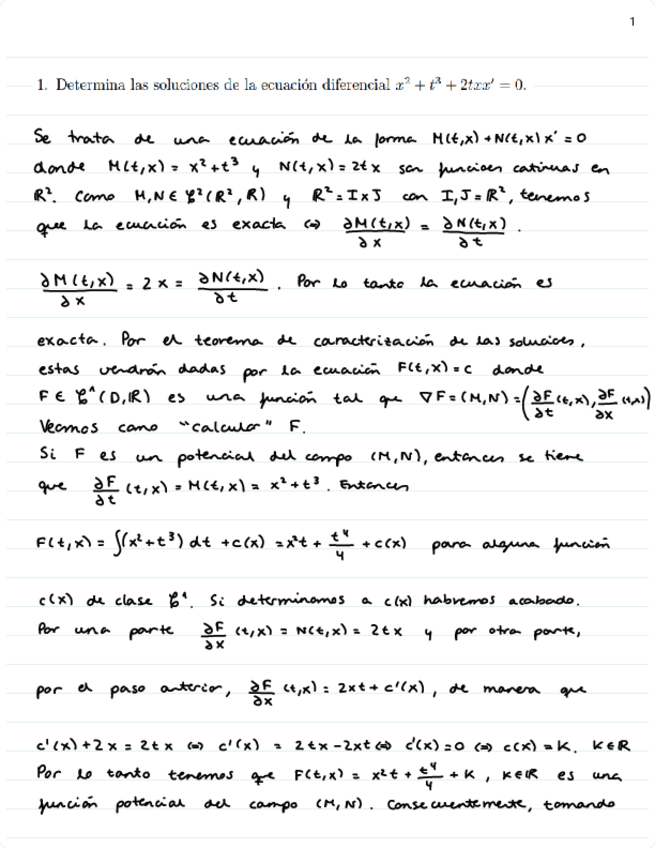 1
1. Determina las soluciones de la ecuación diferencial x² + t³ + 2txx′ = 0.
Se trata de una ecuación de la forma M(t,x) + N(t,x) x' = 0
donde M(t,x) = x² + t³ y N(t,x) = 2tx son funciones continuas en
R². Como M, N ∈ C¹(R², R) y R² = I x J con I, J = R², tenemos
que la ecuación es exacta ⇔ ∂M(t,x)/∂x = ∂N(t,x)/∂t.
∂M(t,x)/∂x = 2x = ∂N(t,x)/∂t. Por lo tanto la ecuación es
exacta. Por el teorema de caracterización de las soluciones,
estas vendrán dadas por la ecuación F(t,x) = c donde
F ∈ C¹(D, R) es una función tal que ∇F = (M,N) = (∂F/∂t (t,x), ∂F/∂x (t,x))
Veamos como "calcular" F.
Si F es un potencial del campo (M,N), entonces se tiene
que ∂F/∂t (t,x) = M(t,x) = x² + t³. Entonces
F(t,x) = ∫(x² + t³) dt + c(x) = x²t + t⁴/4 + c(x) para alguna función
c(x) de clase C¹. Si determinamos a c(x) habremos acabado.
Por una parte ∂F/∂x (t,x) = N(t,x) = 2tx y por otra parte,
por el paso anterior, ∂F/∂x (t,x) = 2xt + c'(x), de manera que
c'(x) + 2x = 2tx ⇔ c'(x) = 2tx - 2xt ⇔ c'(x) = 0 ⇔ c(x) = K. K ∈ R
Por lo tanto tenemos que F(t,x) = x²t + t⁴/4 + K, K ∈ R es una
función potencial del campo (M,N). Consecuentemente, tomando